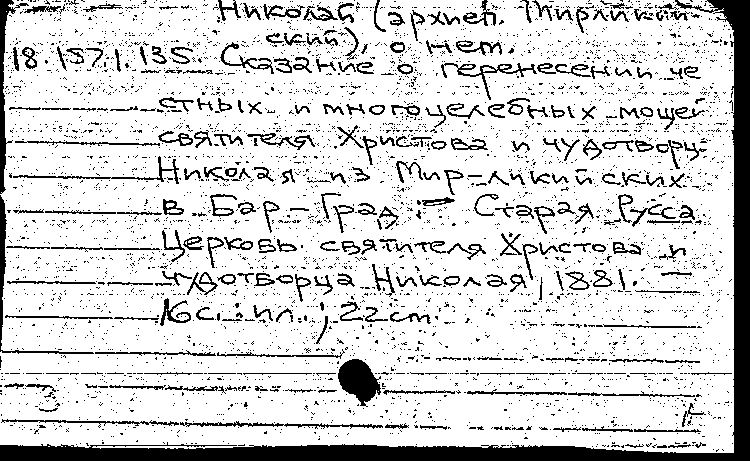 Николай (архиеп. Мирликий-
ский), о нем.
18.157.1.135. Сказание о перенесении че
стных и многоцелебных мощей
святителя Христова и чудотворц-
Николая из Мир-ликийских
в Бар-Град. — Старая Русса
Церковь святителя Христова и
чудотворца Николая, 1881. —
16 с. : ил. ; 22 cm.
3